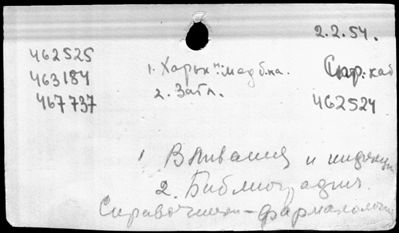 2.2.54.
462525
463184
467737
1. Харьк. мед. б-ка.
2. Загл.
462524
1. Вливания и
2. Библиография.
Справочники - фармакология